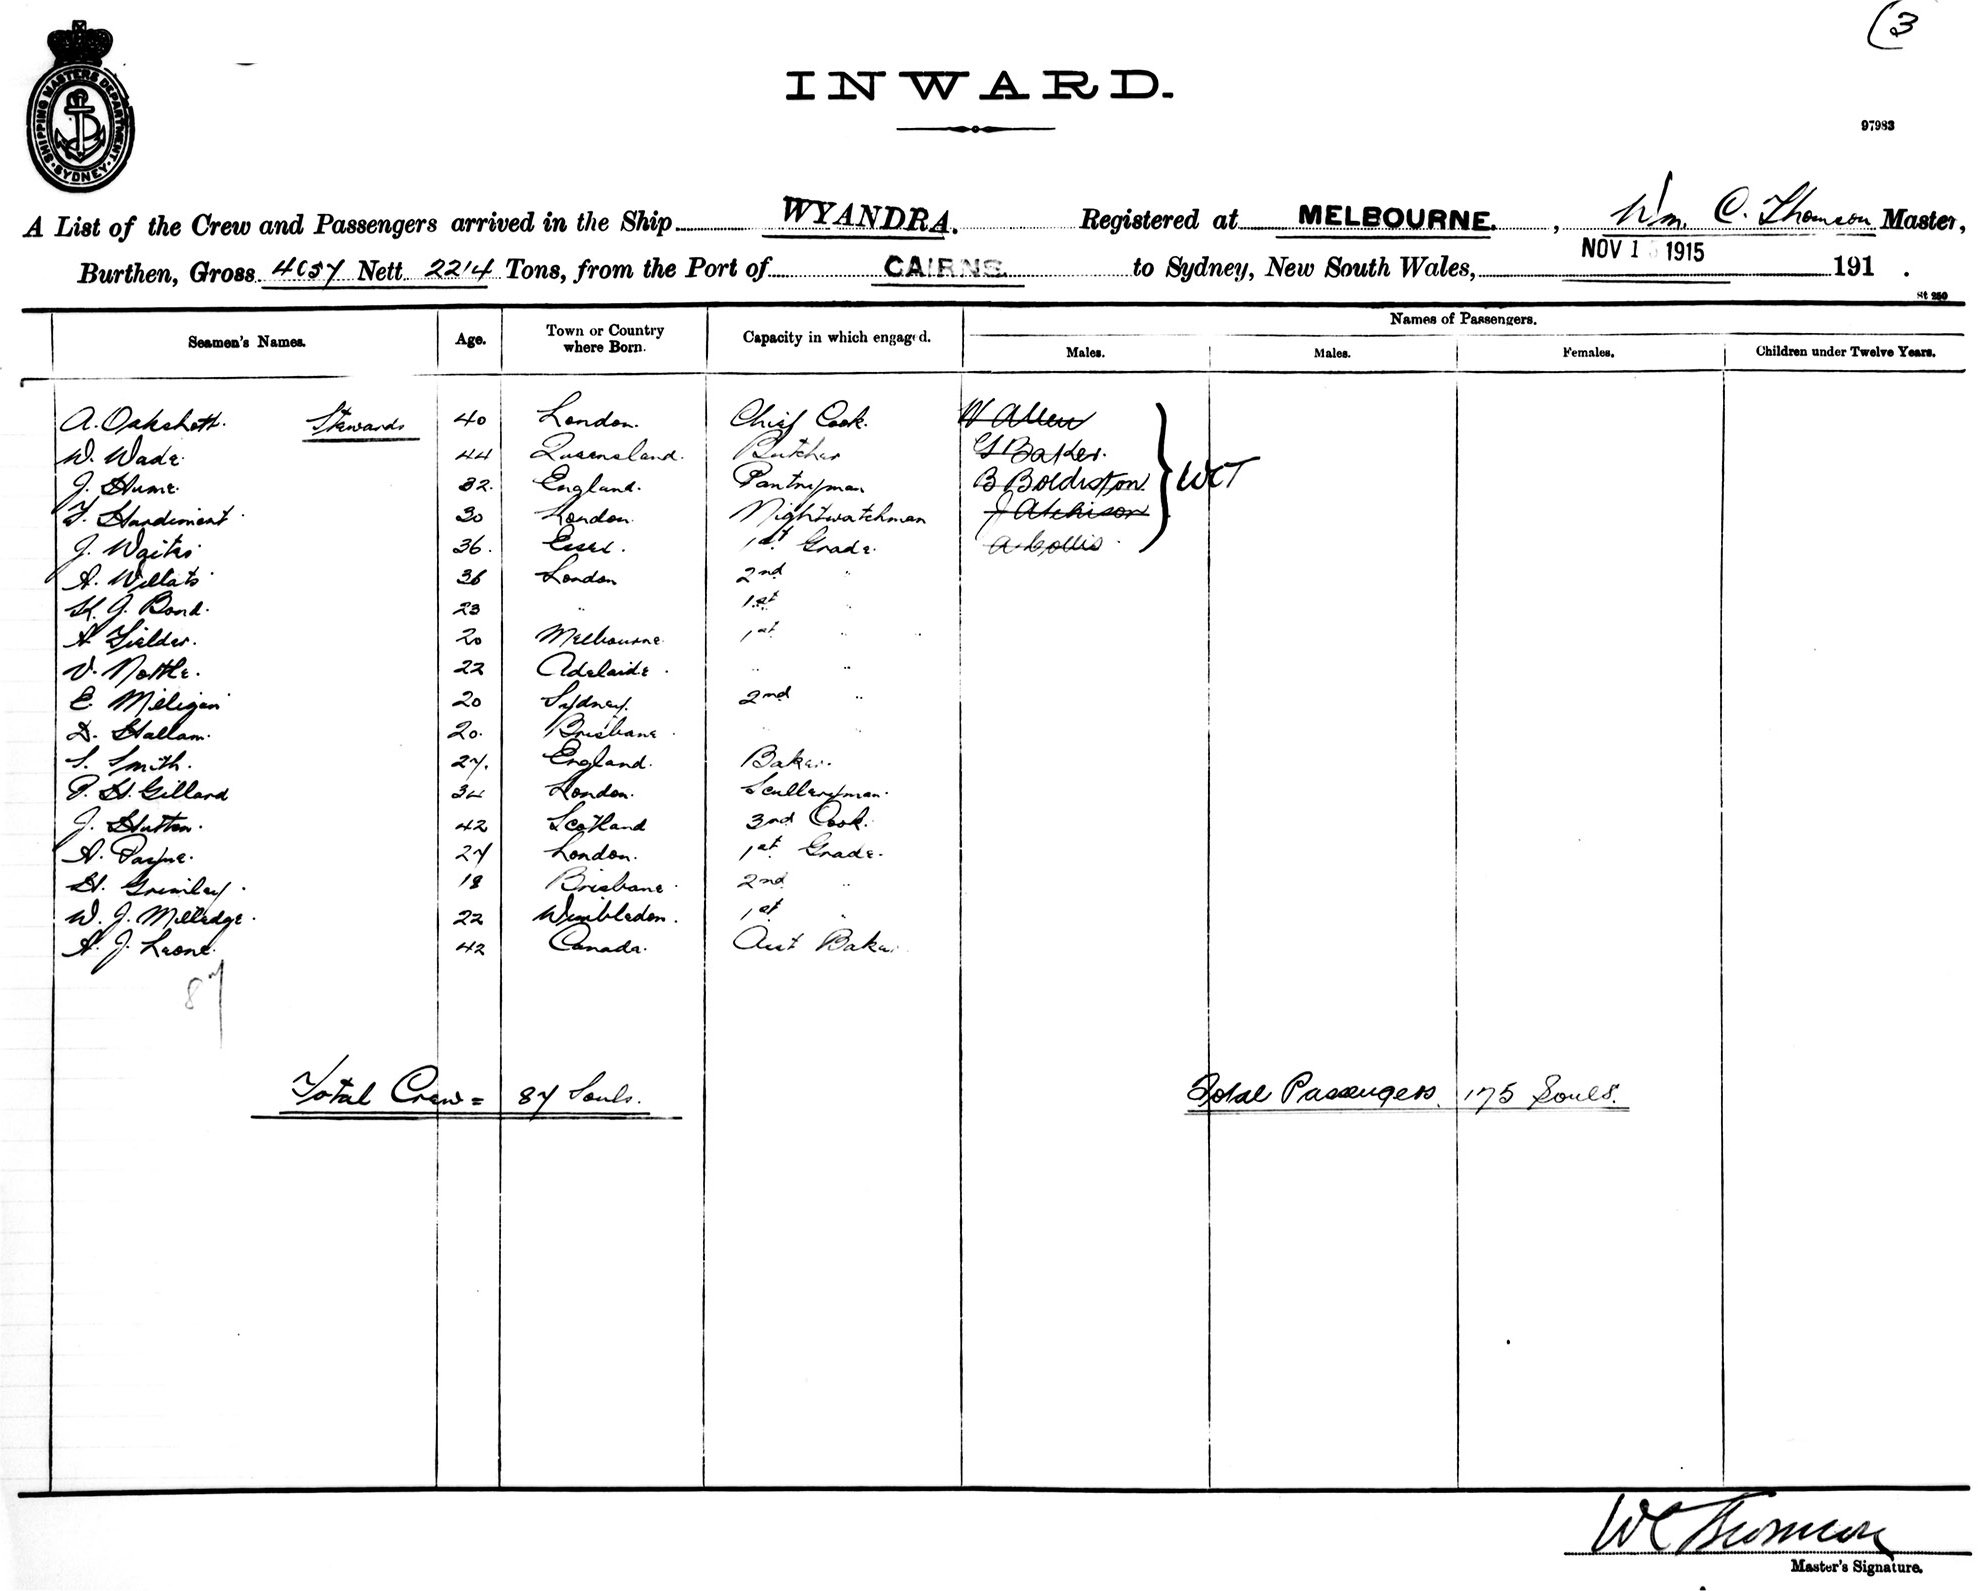 (3
SHIPPING MASTERS DEPARTMENT. SYDNEY.
INWARD.
97983
A List of the Crew and Passengers arrived in the Ship WYANDRA. Registered at MELBOURNE. , Wm. C. Thomson Master,
Burthen, Gross 4057 Nett 2214 Tons, from the Port of CAIRNS to Sydney, New South Wales, NOV 1 1915 191 .
St 250
Seamen's Names. Age. Town or Country where Born. Capacity in which engaged. Names of Passengers.
Males. Males. Females. Children under Twelve Years.
A. Oakshott. Stewards 40 London. Chief Cook. W Allen
W. Wade. 44 Queensland. Butcher G Baker.
J. Hume. 32. England. Pantryman B Boldiston. WCT
F. Hardiment. 30 London. Nightwatchman J Atchison
J. Waites 36. Essex. 1st Grade. A Collis
A. Willats 36 London 2nd "
H. J. Bond. 23 " 1st "
A. Fielder. 20 Melbourne. 1st "
V. Nottle. 22 Adelaide. " "
E. Miligan 20 Sydney. 2nd "
D. Hallam. 20. Brisbane. " "
S. Smith. 27. England. Baker.
P. H. Gillard 34 London. Sculleryman.
J. Hutton. 42 Scotland 3rd Cook.
A. Payne. 27 London. 1st Grade.
H. Grimley. 18 Brisbane. 2nd "
W. J. Milledge. 22 Wimbledon. 1st "
A. J. Leone. 42 Canada. Asst Baker
87
Total Crew = 87 Souls. Total Passengers. 175 Souls.
WC Thomson
Master's Signature.